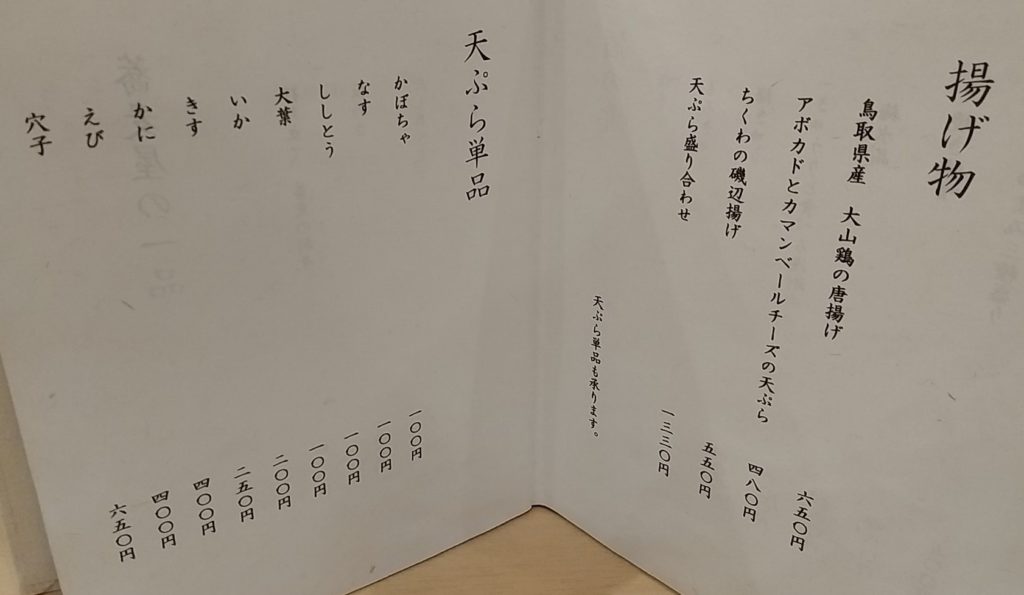 揚げ物
鳥取県産　大山鶏の唐揚げ　六五〇円
アボカドとカマンベールチーズの天ぷら　四八〇円
ちくわの磯辺揚げ　五五〇円
天ぷら盛り合わせ　一三三〇円
天ぷら単品も承ります。
天ぷら単品
かぼちゃ　一〇〇円
なす　一〇〇円
ししとう　一〇〇円
大葉　一〇〇円
いか　二〇〇円
きす　二五〇円
かに　四〇〇円
えび　四〇〇円
穴子　六五〇円